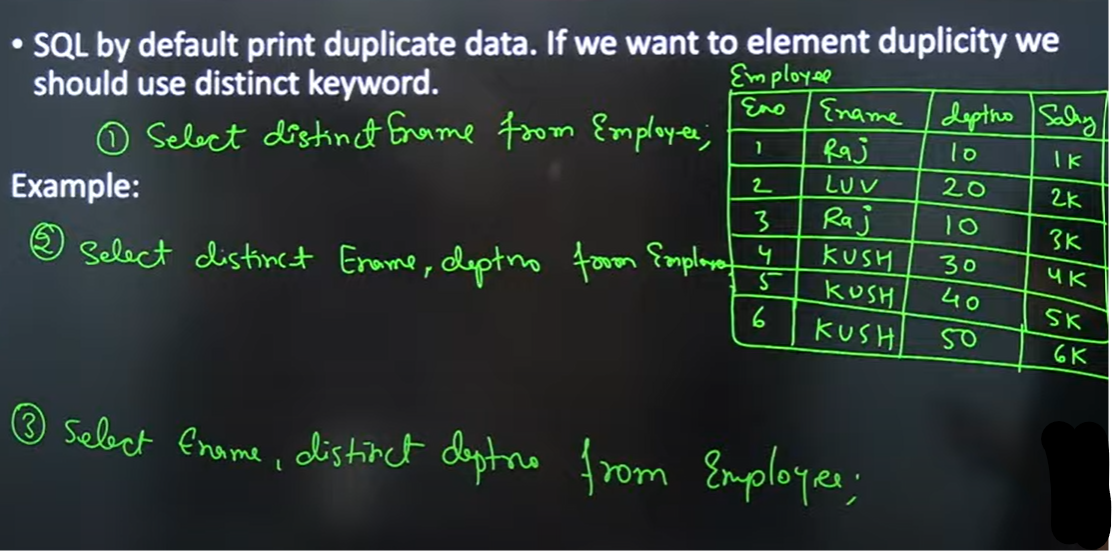 • SQL by default print duplicate data. If we want to element duplicity we
should use distinct keyword.
① Select distinct Ename from Employee;
Example:
② Select distinct Ename, deptno from Employee
③ Select Ename, distinct deptno from Employee;
Employee
Eno Ename deptno Salary
1 Raj 10 1K
2 LUV 20 2K
3 Raj 10 3K
4 KUSH 30 4K
5 KUSH 40 5K
6 KUSH 50 6K